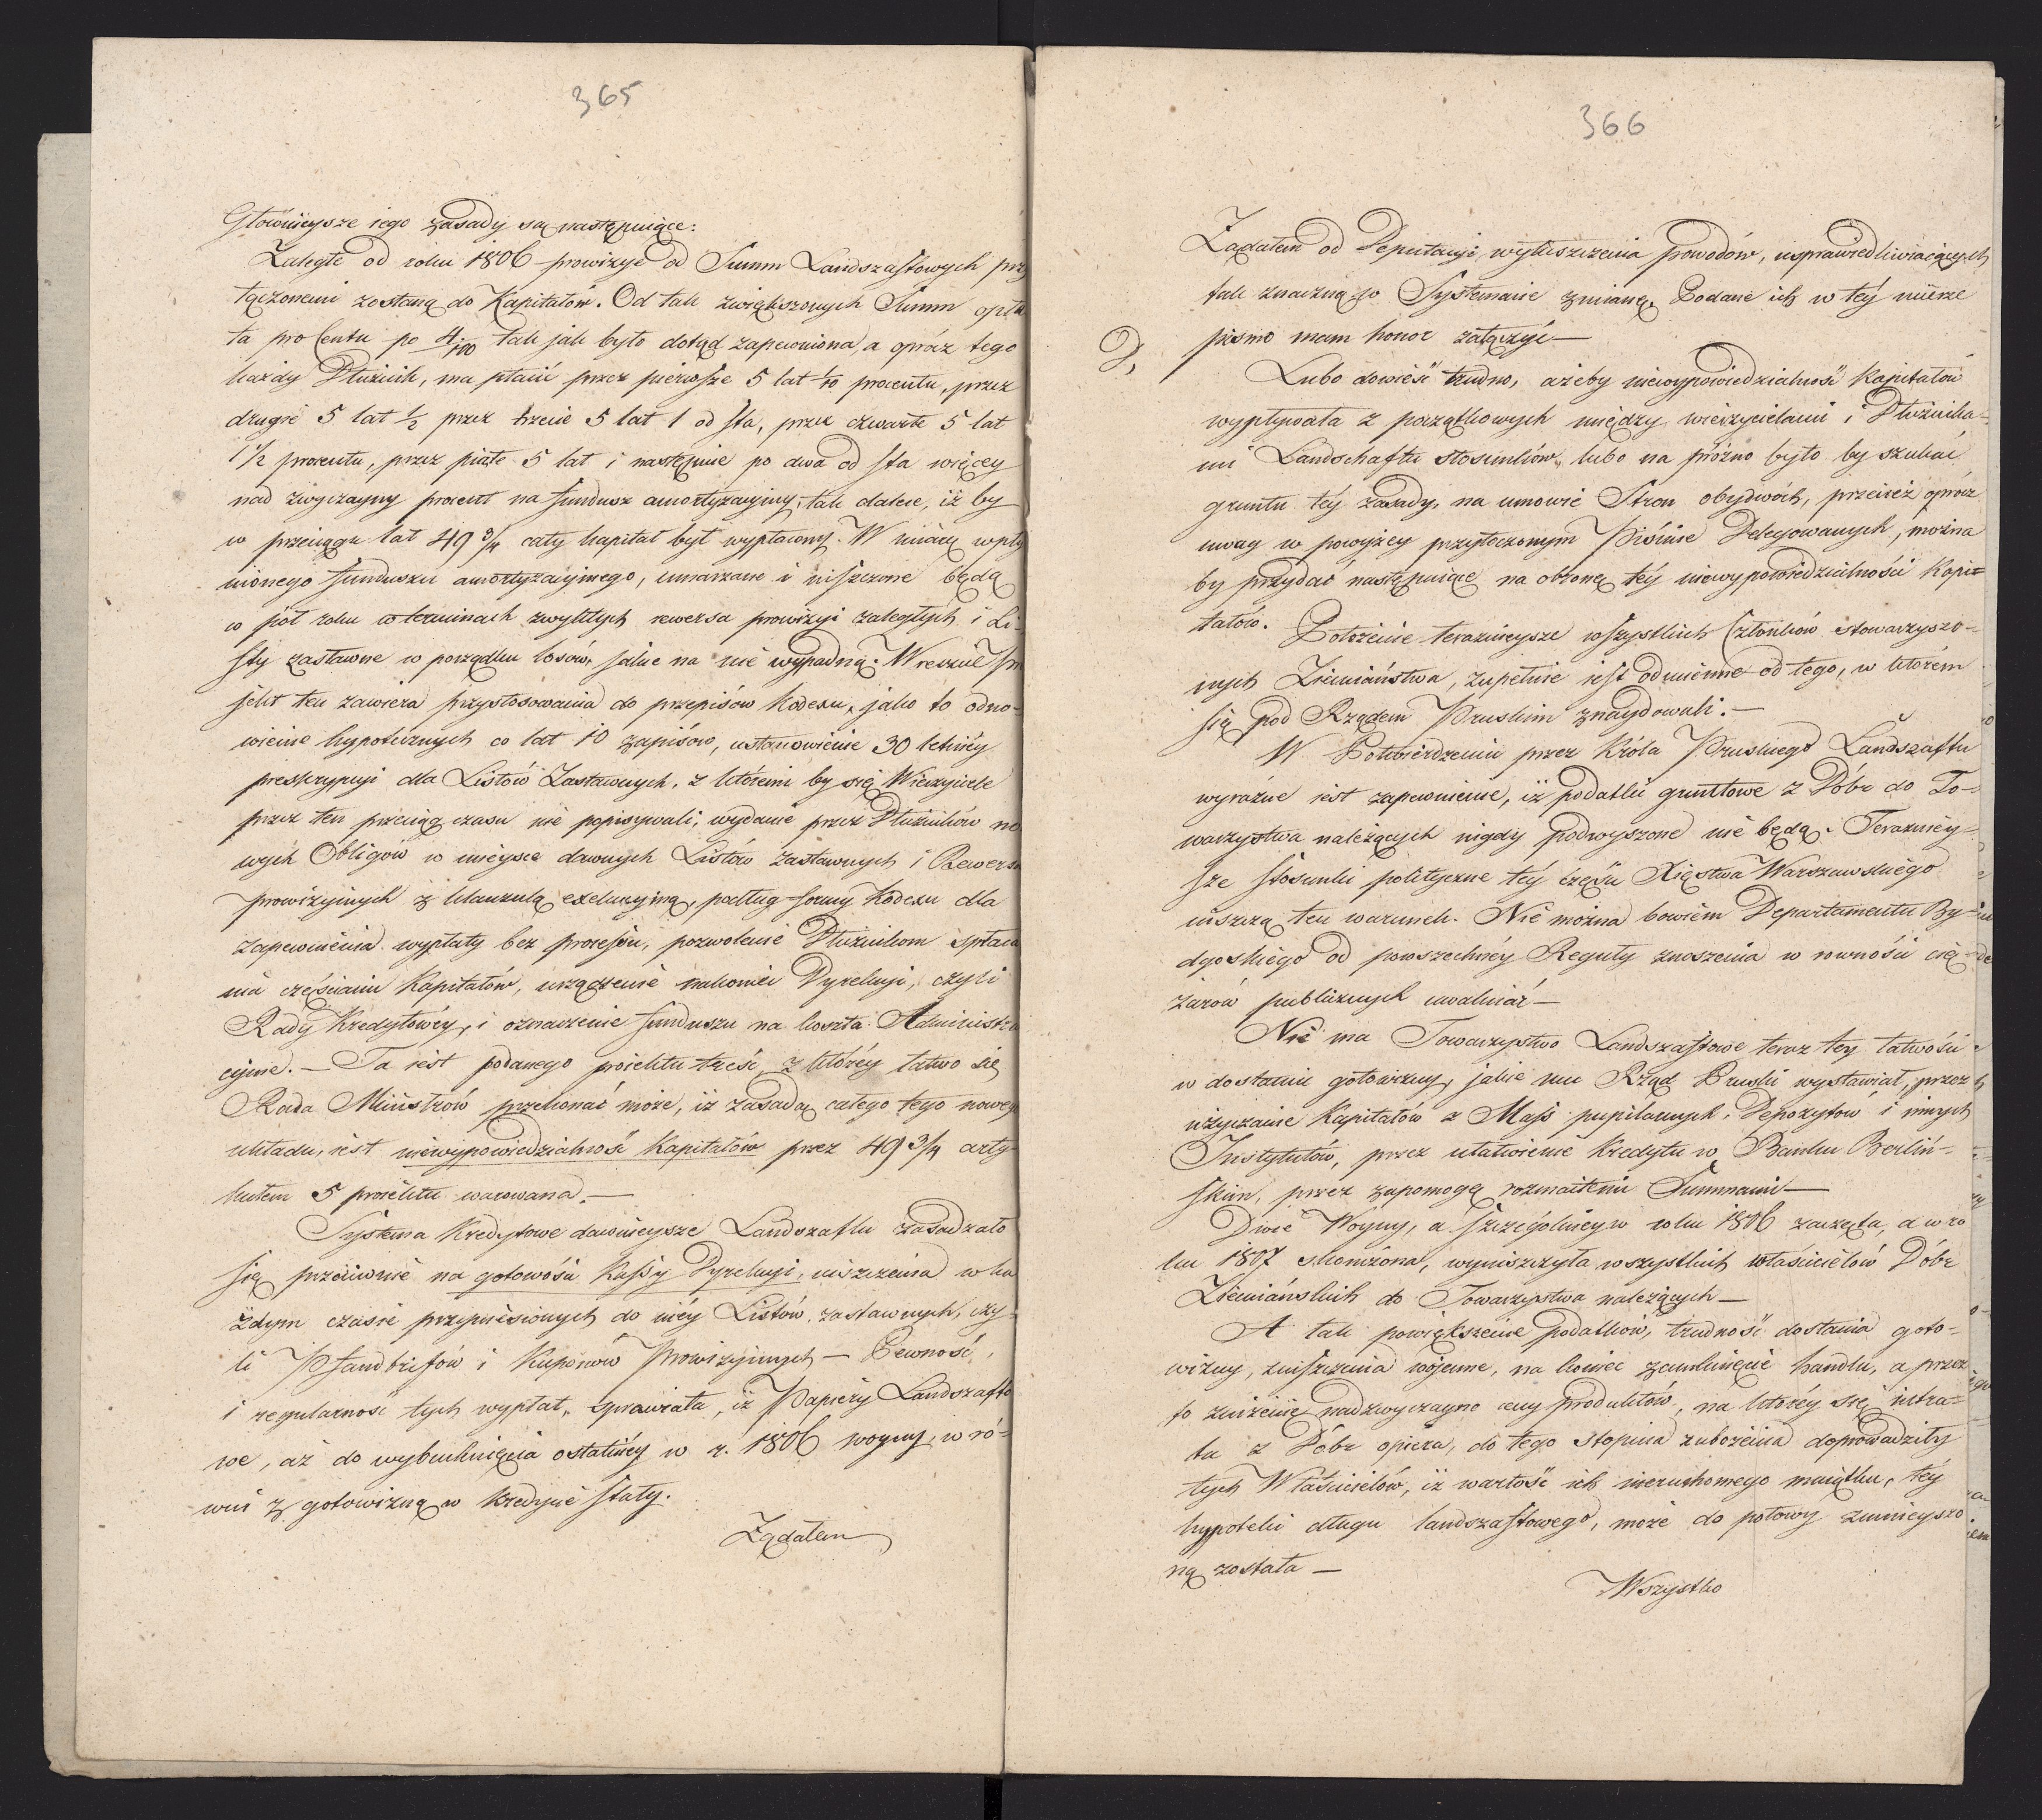 365
Głównieysze iego zasady są następuiące:
Zaległe od roku 1806 prowizye od Summ Landszaftowych przy
łączonemi zostaną do Kapitałów. Od tak zwiększonych Summ opła
ta pro Centu po 4/100 tak jak było dotąd zapewniona, a oprócz tego
każdy Dłużnik, ma płacić przez pierwsze 5 lat 1/10 procentu, przez
drugie 5 lat 1/2 przez trzecie 5 lat 1 od sta, przez czwarte 5 lat
1 1/2 procentu, przez piąte 5 lat i następnie po dwa od sta więcey
nad zwyczayny procent na fundusz amortyzacyiny, tak dalece, iż by
w przeciągu lat 49 3/4 cały kapitał był wypłacony. W miarę wpły
nionego funduszu amortyzacyinego, umarzane i niszczone będą
co pół roku w terminach zwykłych rewersa prowizyi zaległych i Li-
sty zastawne w porządku losów, jakie na nie wypadną. Wreszcie Pro
jekt ten zawiera przystosowania do przepisów Kodexu, jako to odno-
wienie hypotecznych co lat 10 zapisów, ustanowienie 30 letniéy
preskrypcyi dla Listów Zastawnych, z któremi by się Wierzyciele
przez ten przeciąg czasu nie popisywali; wydanie przez Dłużników no
wych Obligów w mieysce dawnych Listów zastawnych i Rewersów
prowizyinych z klauzulą exekucyiną, podług formy Kodexu dla
zapewnienia wypłaty bez processu, pozwolenie Dłużnikom spłaca
nia częściami Kapitałów, urządzenie nakoniec Dyrekcyi, czyli
Rady Kredytowéy, i oznaczenie funduszu na koszta Administra
cyine. — Ta iest podanego proiektu treść, z którey łatwo się
Rada Ministrów przekonać może, iż zasadą całego tego nowego
układu, iest niewypowiedzialność Kapitałów przez 49 3/4 arty-
kułem 5 proiektu warowana. —
Systema Kredytowe dawnieysze Landszaftu zasadzało
się przeciwnie na gotowości Kassy Dyrekcyi, uiszczenia w ka
żdym czasie przyniesionych do niéy Listów zastawnych, czy-
li Pfandbrifów i Kuponów Prowizyinych — Pewność,
i regularność tych wypłat, sprawiała, iż Papiery Landszafto
we, aż do wybuchnięcia ostatniéy w r. 1806 woyny, w ró-
wni z gotowizną w kredycie stały.
Żądałem
366
Żądałem od Deputacyi, wyłuszczenia powodów, usprawiedliwiaiących
tak znaczną w Systemacie zmianę. Podane ich w téy mierze
D, pismo mam honor załączyć —
Lubo dowieść trudno, ażeby niewypowiedzialność Kapitałów
wypływała z początkowych między wierzycielami i Dłużnika-
mi Landschaftu stosunków, lubo na próżno było by szukać
gruntu téy zasady, na umowie Stron obydwóch, przecież oprócz
uwag w powyżey przytoczonym Piśmie Delegowanych, można
by przydać następuiące na obronę téy niewypowiedzialności Kapi-
tałów. Położenie teraznieysze wszystkich Członków stowarzyszo-
nych Ziemiaństwa, zupełnie iest odmienne od tego, w którém
się pod Rządem Pruskim znaydowali. —
W Potwierdzeniu przez Króla Pruskiego Landszaftu
wyraźne iest zapewnienie, iż podatki gruntowe z Dóbr do To-
warzystwa należących nigdy podwyszone nie będą. Terazniéy-
sze stosunki polityczne téy części Xięstwa Warszawskiego
niszczą ten warunek. Nie można bowiem Departamentu By-
dgoskiego od powszechnéy Reguły znoszenia w rowności cię-
żarów publicznych uwalniać —
Nie ma Towarzystwo Landszaftowe teraz tey łatwości
w dostaniu gotowizny, jakie mu Rząd Pruski wystawiał, przez
użyczanie Kapitałów z Mass pupilarnych, Depozytów i innych
Instytutów, przez ułatwienie kredytu w Banku Berliń-
skim, przez zapomogę rozmaitemi Summami —
Dwie Woyny, a szczególniey w roku 1806 zaczęta, a w ro
ku 1807 skończona, wyniszczyła wszystkich właścicielów Dóbr
Ziemiańskich do Towarzystwa należących —
A tak powiększenie podatków, trudność dostania goto-
wizny, zniszczenia wojenne, na koniec zamknięcie handlu, a przez
to zniżenie nadzwyczayne ceny produktów, na którey się intra-
ta z Dóbr opiera, do tego stopnia zubożenia doprowadziły
tych Właścicielów, iż wartość ich nieruchomego maiątku, téy
hypoteki długu landszaftowego, może do połowy zmnieyszo
ną została —
Wszystko